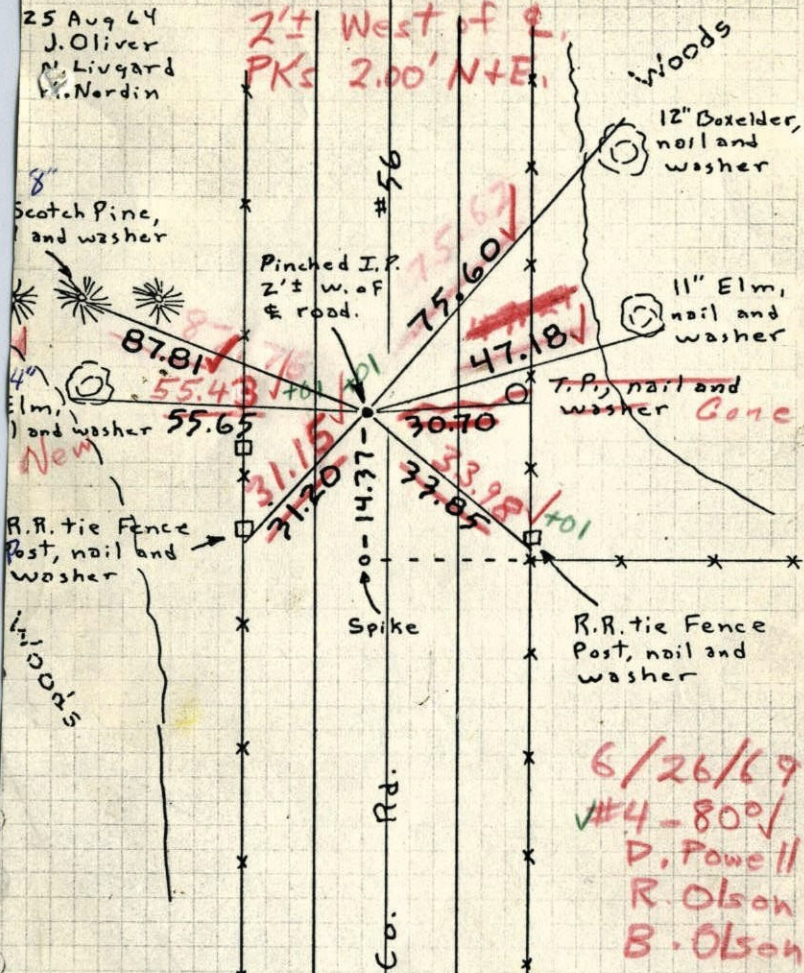 25 Aug 64
J. Oliver
N. Livgard
M. Nordin
2'± West of ℄.
PK's 2.00' N+E.
Woods
12" Boxelder,
nail and
washer
#56
8"
Scotch Pine,
and washer
Pinched I.P.
2'± w. of
℄ road.
75.62
75.60
11" Elm,
nail and
washer
87.76
87.81
47.18
55.43
+01
+01
55.65
4"
Elm,
and washer
New
T.P., nail and
washer Gone
30.70
31.15
31.20
33.98
33.85
+01
14.37
R.R. tie Fence
Post, nail and
washer
Spike
R.R. tie Fence
Post, nail and
washer
Woods
Co. Rd.
6/26/69
#4 - 80°
D. Powell
R. Olson
B. Olson